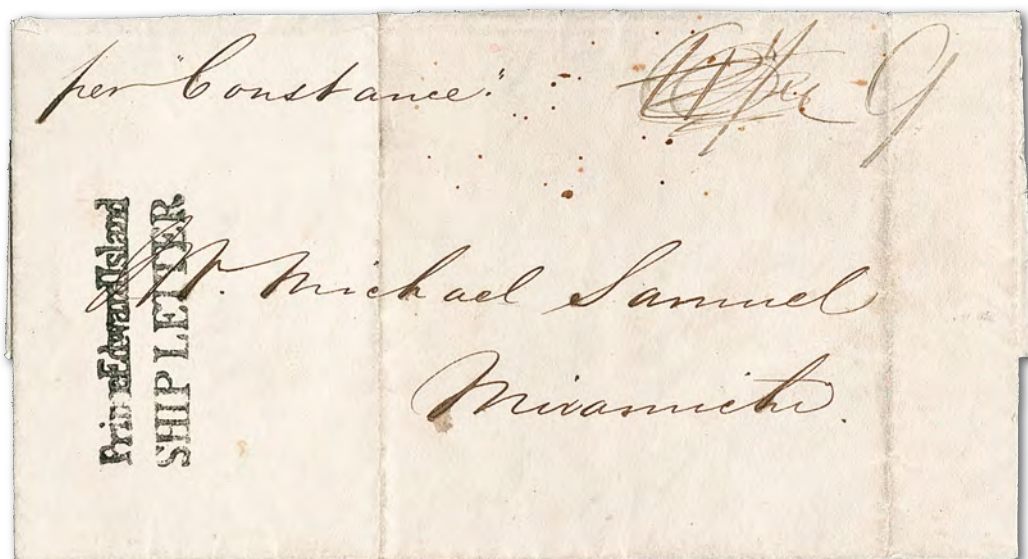 per "Constance."
9
Prince Edward Island
SHIP LETTER
Mr. Michael Samuel
Miramichi.